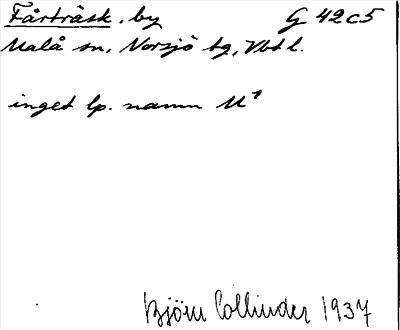 Fårträsk, by G 42 c 5
Malå sn, Norsjö tg, Vbtl.
inget lp. namn M¹
Björn Collinder 1937